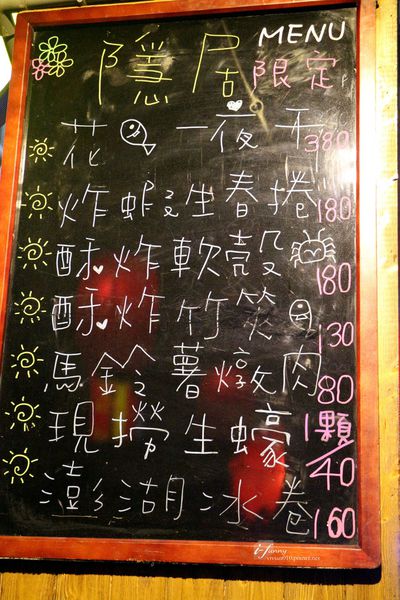 MENU
隱居限定
花一夜干 380
炸蝦生春捲 180
酥炸軟殼 180
酥炸竹筴 130
馬鈴薯燉肉 80
現撈生蠔 1顆/40
澎湖冰卷 160
t-funny